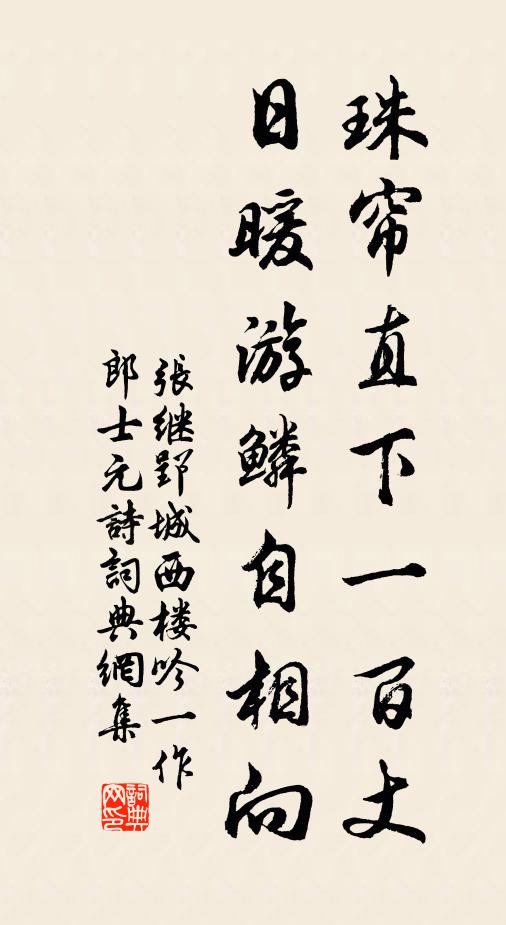 珠帘直下一百丈
日暖游鳞自相向
張继郢城西楼吟一作
郎士元詩詞典網集
詞典网印